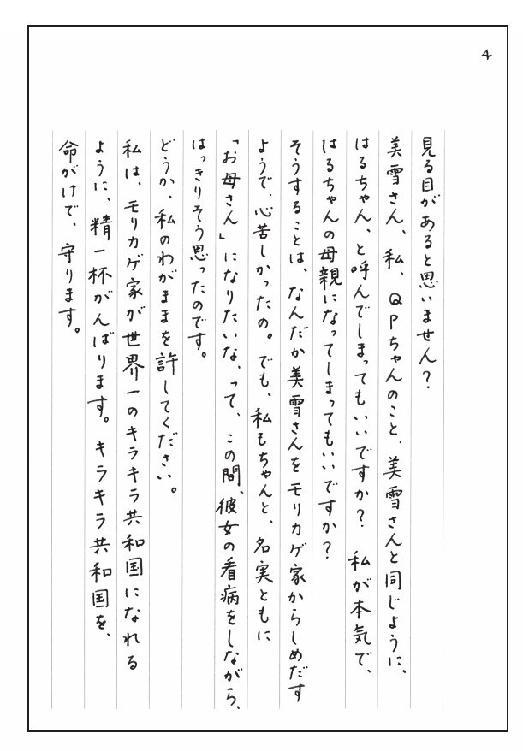 4
見る目があると思いません?
美雪さん、私、QPちゃんのこと、美雪さんと同じように、
はるちゃん、と呼んでしまってもいいですか? 私が本気で、
はるちゃんの母親になってしまってもいいですか?
そうすることは、なんだか美雪さんをモリカゲ家からしめだす
ようで、心苦しかったの。でも、私もちゃんと、名実ともに
「お母さん」になりたいな、って、この間、彼女の看病をしながら、
はっきりそう思ったのです。
どうか、私のわがままを許してください。
私は、モリカゲ家が世界一のキラキラ共和国になれる
ように、精一杯がんばります。キラキラ共和国を、
命がけで、守ります。